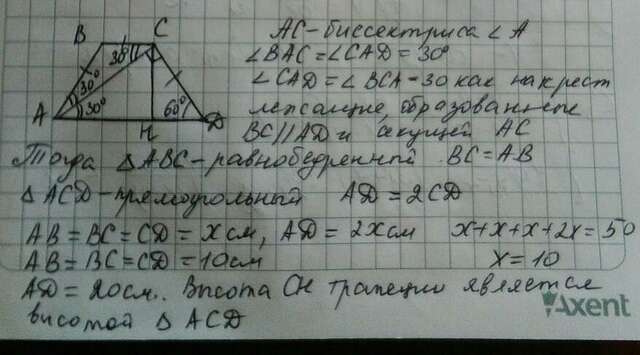 B C
30°
30°
30°
60°
A H D
AC - биссектриса ∠A
∠BAC = ∠CAD = 30°
∠CAD = ∠BCA - 30 как накрест
лежащие, образованные
BC || AD и секущей AC
Тогда △ABC - равнобедренный BC = AB
△ACD - прямоугольный AD = 2CD
AB = BC = CD = x см, AD = 2x см x+x+x+2x = 50
AB = BC = CD = 10 см x = 10
AD = 20 см. Высота CH трапеции является
высотой △ ACD
Axent